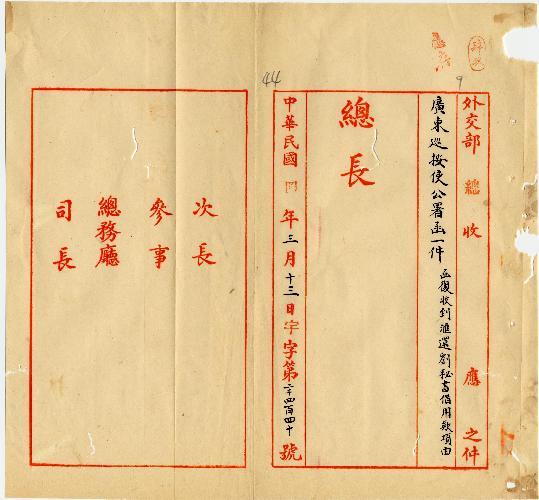 外交部總收應之件
廣東巡按使公署函一件
函復收到滙還劉秘書借用款項由
總長
中華民國四年三月十三日宇字第二千四百四十號
次長
參事
總務廳
司長
44
9